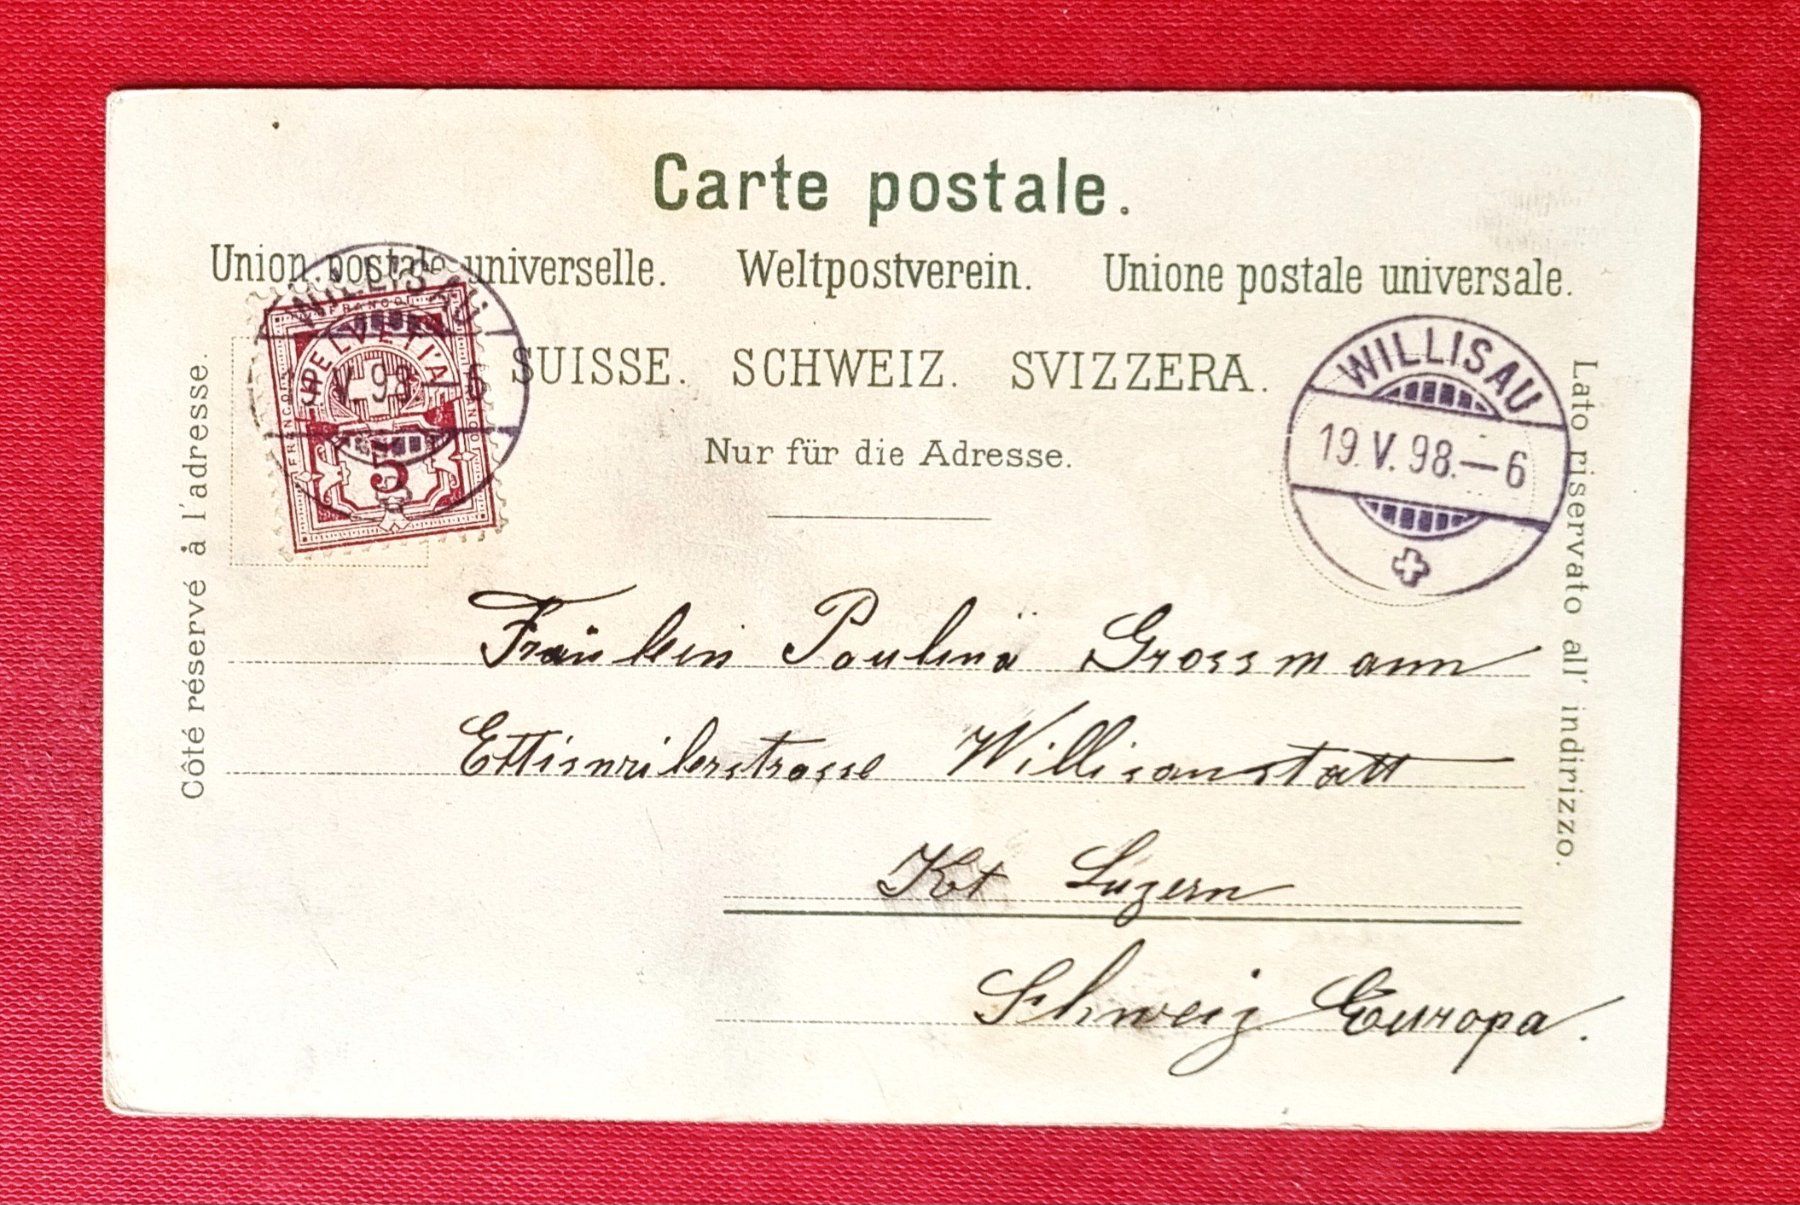 Carte postale.
Union postale universelle. Weltpostverein. Unione postale universale.
SUISSE. SCHWEIZ. SVIZZERA.
Nur für die Adresse.
Côté réservé à l'adresse.
Lato riservato all' indirizzo.
WILLISAU
V. 98 – 6
FRANCO
HELVETIA
FRANCO
5
WILLISAU
19. V. 98. – 6
Fräulein Paulina Grossmann
Ettiswilerstrasse Willisaustatt
Kt Luzern
Schweiz Europa.